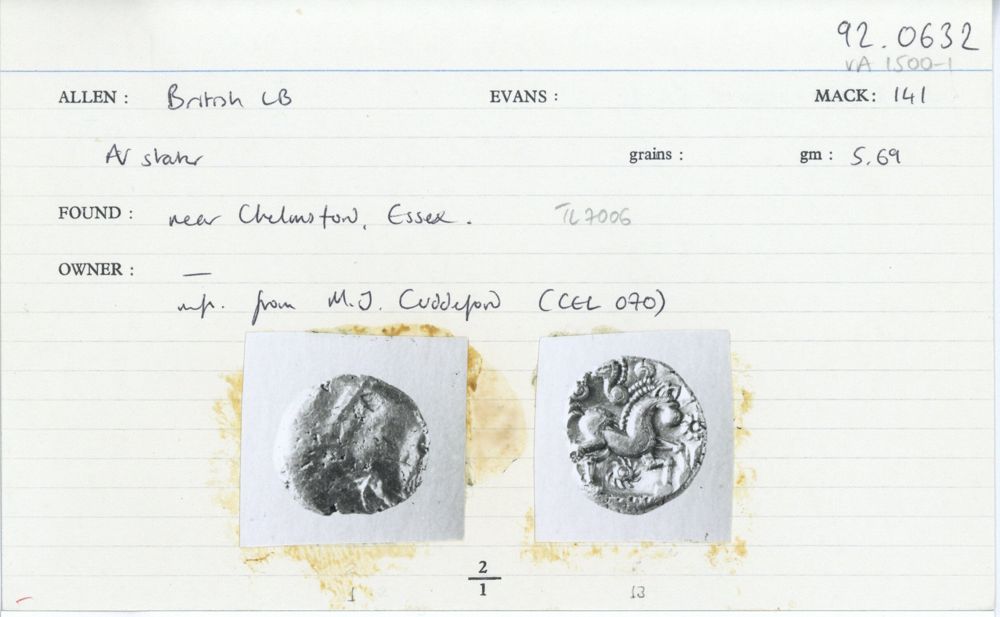 92.0632
VA 1500-1
ALLEN : British LB EVANS : MACK: 141
AV stater grains : gm : 5.69
FOUND : near Chelmsford, Essex. TL7006
OWNER : —
inf. from M.J. Cuddeford (CEL 070)
2
1
1 13